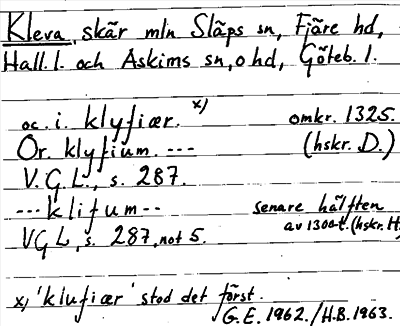 Kleva, skär mln Släps sn, Fjäre hd,
Hall. l. och Askims sn, o hd, Göteb. l.
oc. i. klyfiær. x) omkr. 1325.
Or. klyfium. --- (hskr. D.)
V. G. L., s. 287.
---klifum-- senare hälften
av 1300-t. (hskr. H)
VGL, s. 287, not 5.
x) 'klufiær' stod det först.
G. E. 1962. / H.B. 1963.